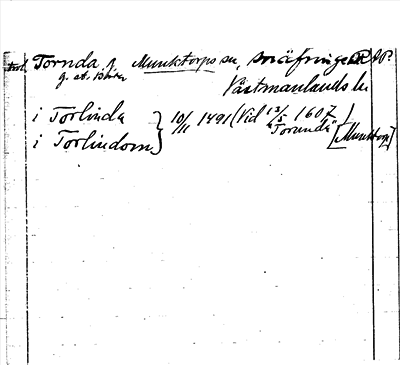 Tornda Munktorps sn, Snäfringe
Västmanlands län
i Torlinda } 10/11 1491 (Vid 13/5 1607)
"Torunda" [Munktorp]
i Torlindom